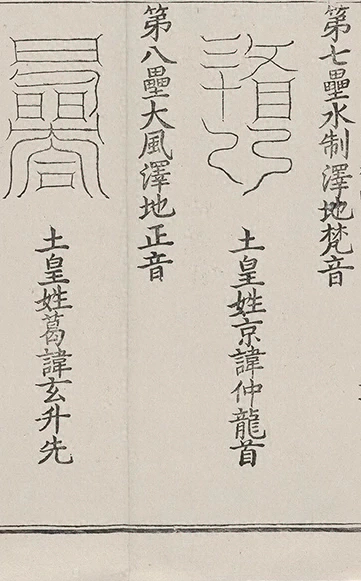 第七壘水制澤地梵音
土皇姓京諱仲龍首
第八壘大風澤地正音
土皇姓葛諱玄升先